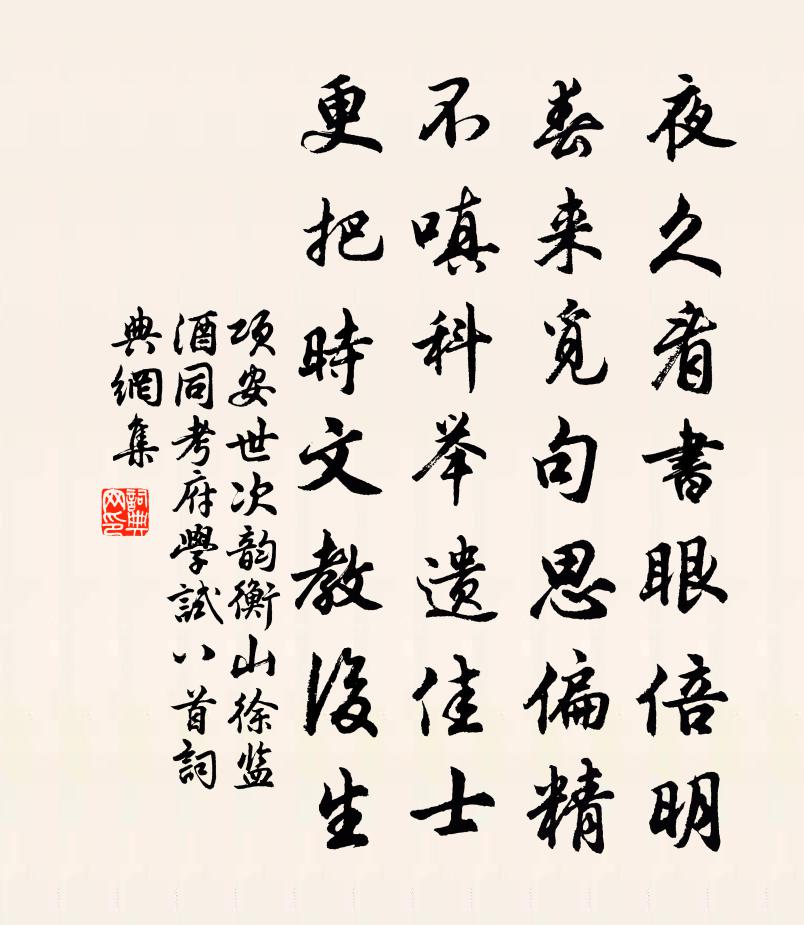 夜久看書眼倍明
春来觅句思偏精
不嗔科举遗佳士
更把時文教後生
项安世次韵衡山徐监
酒同考府學試八首詞
典網集
詞典网印